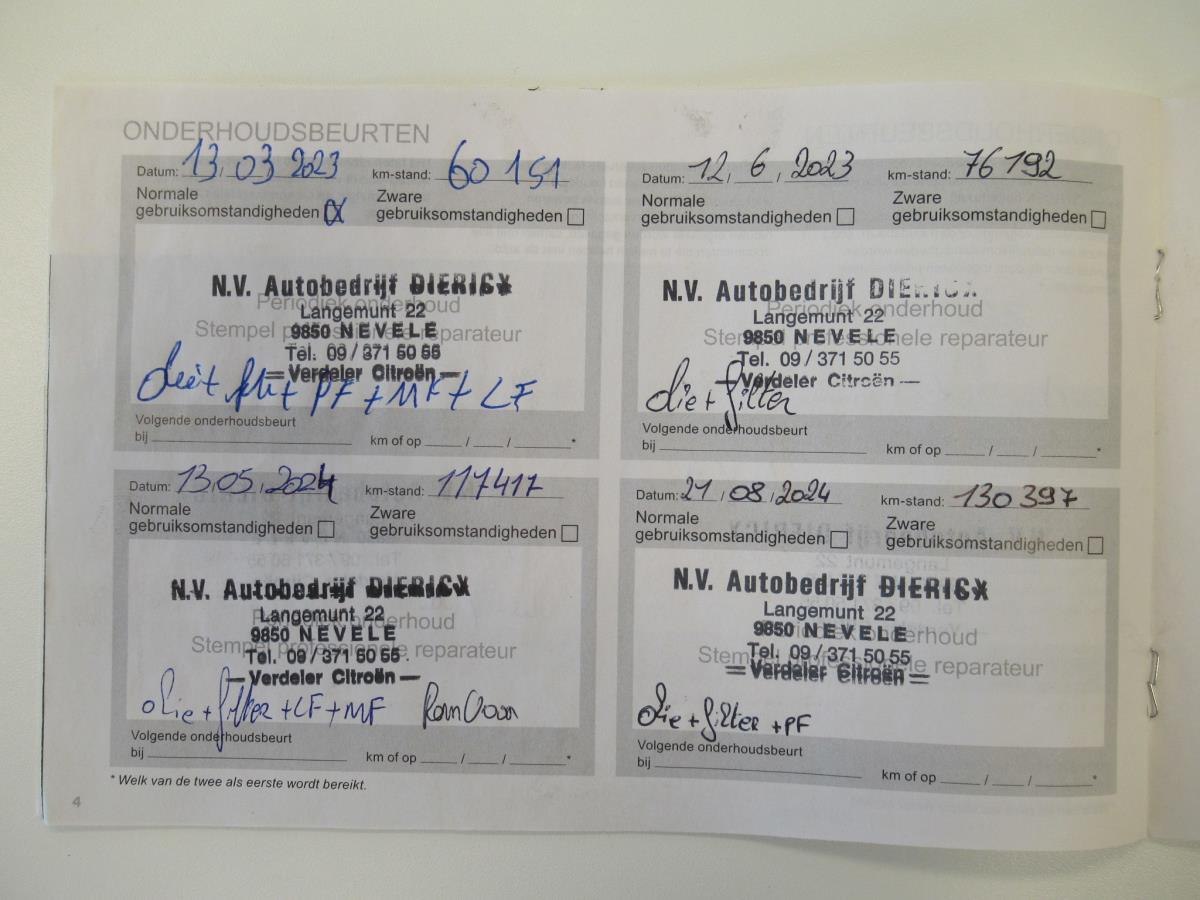 ONDERHOUDSBEURTEN
Datum: 13, 03 2023 km-stand: 60 151
Normale gebruiksomstandigheden
Zware gebruiksomstandigheden
N.V. Autobedrijf DIERICX
Periodiek onderhoud
Langemunt 22
Stempel professionele reparateur
9850 NEVELE
Tel. 09/371 50 55
— Verdeler Citroën —
+ PF + MF + LF
Volgende onderhoudsbeurt
bij km of op / / *
Datum: 12, 6 / 2023 km-stand: 76192
Normale gebruiksomstandigheden
Zware gebruiksomstandigheden
N.V. Autobedrijf DIERICX
Periodiek onderhoud
Langemunt 22
Stempel professionele reparateur
9850 NEVELE
Tel. 09/371 50 55
— Verdeler Citroën —
olie + filter
Volgende onderhoudsbeurt
bij km of op / / *
Datum: 13, 05, 2024 km-stand: 117417
Normale gebruiksomstandigheden
Zware gebruiksomstandigheden
N.V. Autobedrijf DIERICX
Langemunt 22
Periodiek onderhoud
9850 NEVELE
Stempel professionele reparateur
Tel. 09/371 50 55
— Verdeler Citroën —
olie + filter + LF + MF
Volgende onderhoudsbeurt
bij km of op / / *
Datum: 21 / 08 / 2024 km-stand: 130 397
Normale gebruiksomstandigheden
Zware gebruiksomstandigheden
N.V. Autobedrijf DIERICX
Langemunt 22
9850 NEVELE
Periodiek onderhoud
Tel. 09/371 50 55
Stempel professionele reparateur
— Verdeler Citroën —
olie + filter + PF
Volgende onderhoudsbeurt
bij km of op / / *
* Welk van de twee als eerste wordt bereikt.
4